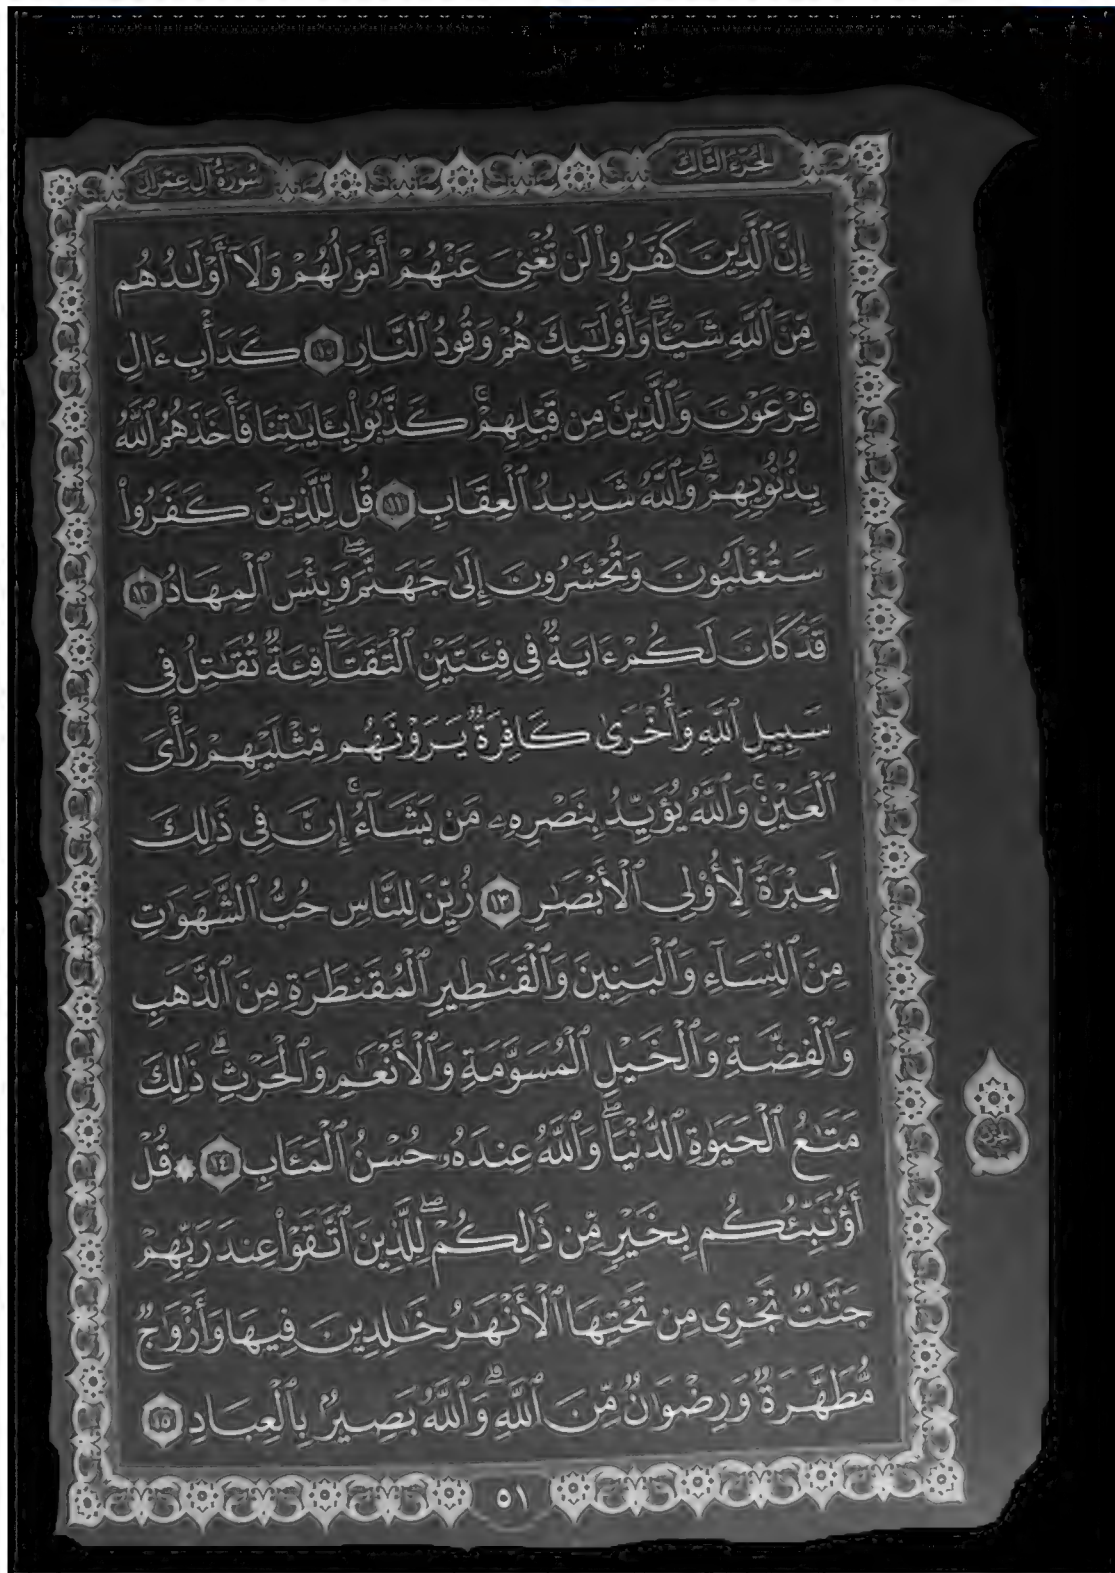 الجزء الثالث
سورة آل عمران
إِنَّ ٱلَّذِينَ كَفَرُوا۟ لَن تُغْنِىَ عَنْهُمْ أَمْوَٰلُهُمْ وَلَآ أَوْلَـٰدُهُم
مِّنَ ٱللَّهِ شَيْـًٔا ۖ وَأُو۟لَـٰٓئِكَ هُمْ وَقُودُ ٱلنَّارِ ١٠ كَدَأْبِ ءَالِ
فِرْعَوْنَ وَٱلَّذِينَ مِن قَبْلِهِمْ ۚ كَذَّبُوا۟ بِـَٔايَـٰتِنَا فَأَخَذَهُمُ ٱللَّهُ
بِذُنُوبِهِمْ ۗ وَٱللَّهُ شَدِيدُ ٱلْعِقَابِ ١١ قُل لِّلَّذِينَ كَفَرُوا۟
سَتُغْلَبُونَ وَتُحْشَرُونَ إِلَىٰ جَهَنَّمَ ۖ وَبِئْسَ ٱلْمِهَادُ ١٢
قَدْ كَانَ لَكُمْ ءَايَةٌ فِى فِئَتَيْنِ ٱلْتَقَتَا ۖ فِئَةٌ تُقَـٰتِلُ فِى
سَبِيلِ ٱللَّهِ وَأُخْرَىٰ كَافِرَةٌ يَرَوْنَهُم مِّثْلَيْهِمْ رَأْىَ
ٱلْعَيْنِ ۚ وَٱللَّهُ يُؤَيِّدُ بِنَصْرِهِۦ مَن يَشَآءُ ۚ إِنَّ فِى ذَٰلِكَ
لَعِبْرَةً لِّأُو۟لِى ٱلْأَبْصَـٰرِ ١٣ زُيِّنَ لِلنَّاسِ حُبُّ ٱلشَّهَوَٰتِ
مِنَ ٱلنِّسَآءِ وَٱلْبَنِينَ وَٱلْقَنَـٰطِيرِ ٱلْمُقَنطَرَةِ مِنَ ٱلذَّهَبِ
وَٱلْفِضَّةِ وَٱلْخَيْلِ ٱلْمُسَوَّمَةِ وَٱلْأَنْعَـٰمِ وَٱلْحَرْثِ ۗ ذَٰلِكَ
مَتَـٰعُ ٱلْحَيَوٰةِ ٱلدُّنْيَا ۖ وَٱللَّهُ عِندَهُۥ حُسْنُ ٱلْمَـَٔابِ ١٤ ۞ قُلْ
أَؤُنَبِّئُكُم بِخَيْرٍ مِّن ذَٰلِكُمْ ۖ لِلَّذِينَ ٱتَّقَوْا۟ عِندَ رَبِّهِمْ
جَنَّـٰتٌ تَجْرِى مِن تَحْتِهَا ٱلْأَنْهَـٰرُ خَـٰلِدِينَ فِيهَا وَأَزْوَٰجٌ
مُّطَهَّرَةٌ وَرِضْوَٰنٌ مِّنَ ٱللَّهِ ۗ وَٱللَّهُ بَصِيرٌۢ بِٱلْعِبَادِ ١٥
٥١